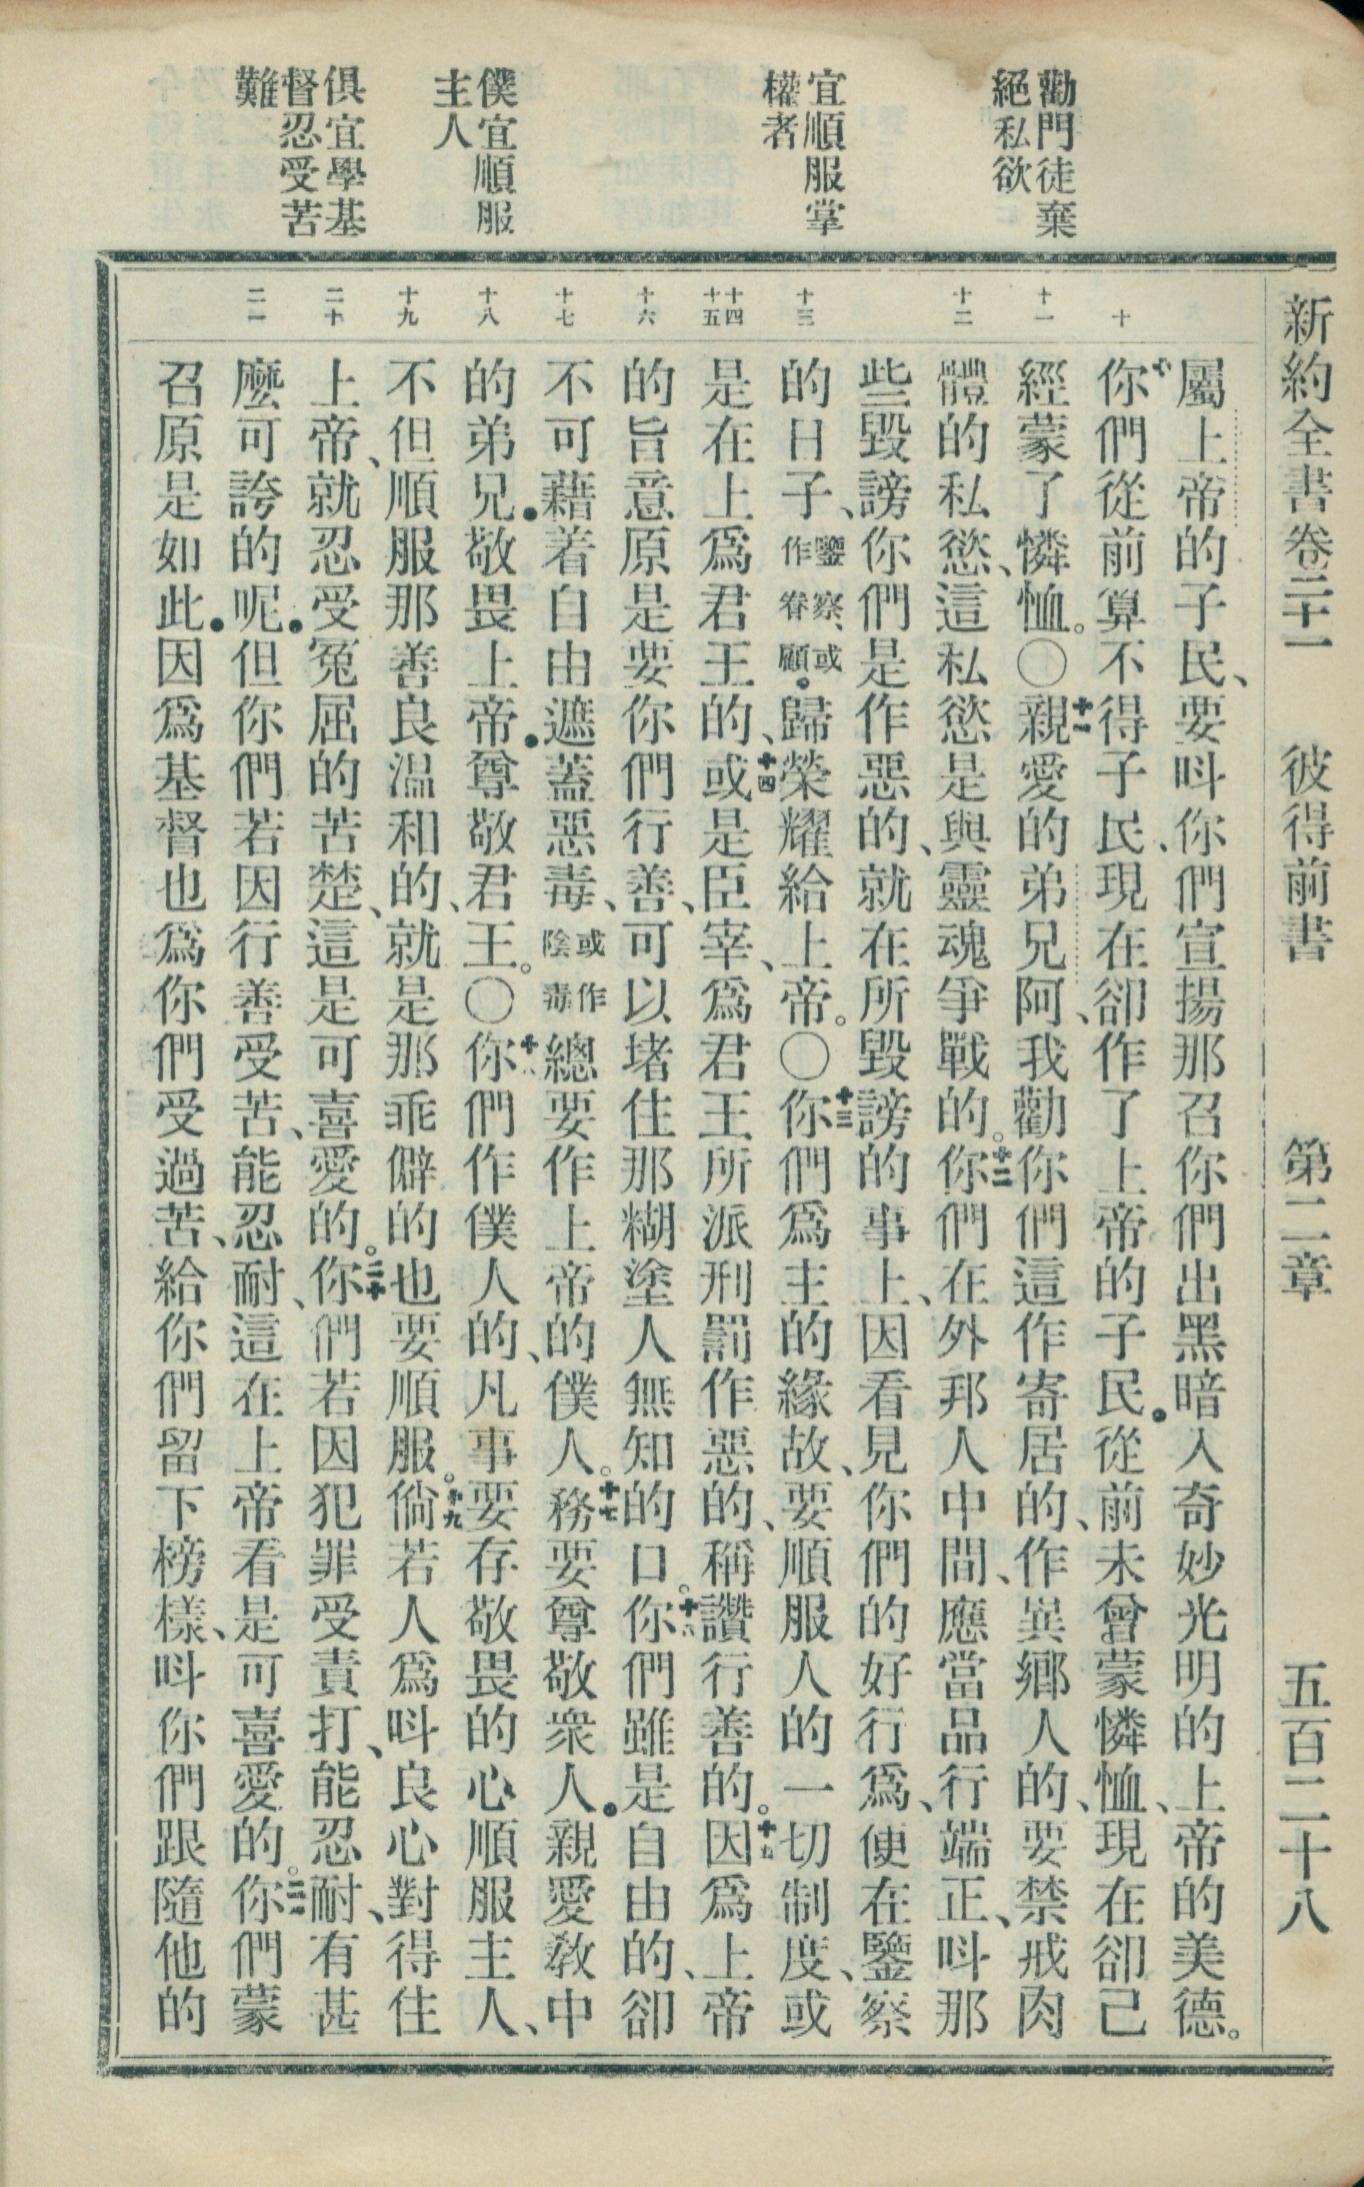 新約全書卷二十一　彼得前書　第二章　五百二十八
勸門徒棄
絕私欲
宜順服掌
權者
僕宜順服
主人
俱宜學基
督忍受苦
難
十
十一
十二
十三
十四
十五
十六
十七
十八
十九
二十
二一
屬上帝的子民、要呌你們宣揚那召你們出黑暗入奇妙光明的上帝的美德。
十你們從前算不得子民、現在卻作了上帝的子民．從前未曾蒙憐恤、現在卻已
經蒙了憐恤。〇十一親愛的弟兄阿、我勸你們這作寄居的、作異鄉人的、要禁戒肉
體的私慾、這私慾是與靈魂爭戰的。十二你們在外邦人中間、應當品行端正、呌那
些毀謗你們是作惡的、就在所毀謗的事上、因看見你們的好行爲、便在鑒察
的日子、鑒察、或作眷顧．歸榮耀給上帝。〇十三你們爲主的緣故、要順服人的一切制度、或
是在上爲君王的、十四或是臣宰、爲君王所派刑罰作惡的、稱讚行善的。十五因爲上帝
的旨意原是要你們行善、可以堵住那糊塗人無知的口。十六你們雖是自由的、卻
不可藉着自由遮蓋惡毒、或作陰毒總要作上帝的僕人。十七務要尊敬衆人．親愛敎中
的弟兄．敬畏上帝．尊敬君王。〇十八你們作僕人的、凡事要存敬畏的心順服主人、
不但順服那善良温和的、就是那乖僻的也要順服。十九倘若人爲呌良心對得住
上帝、就忍受冤屈的苦楚、這是可喜愛的。二十你們若因犯罪受責打、能忍耐、有甚
麽可誇的呢．但你們若因行善受苦、能忍耐、這在上帝看是可喜愛的。二一你們蒙
召原是如此．因爲基督也爲你們受過苦、給你們留下榜樣、呌你們跟隨他的